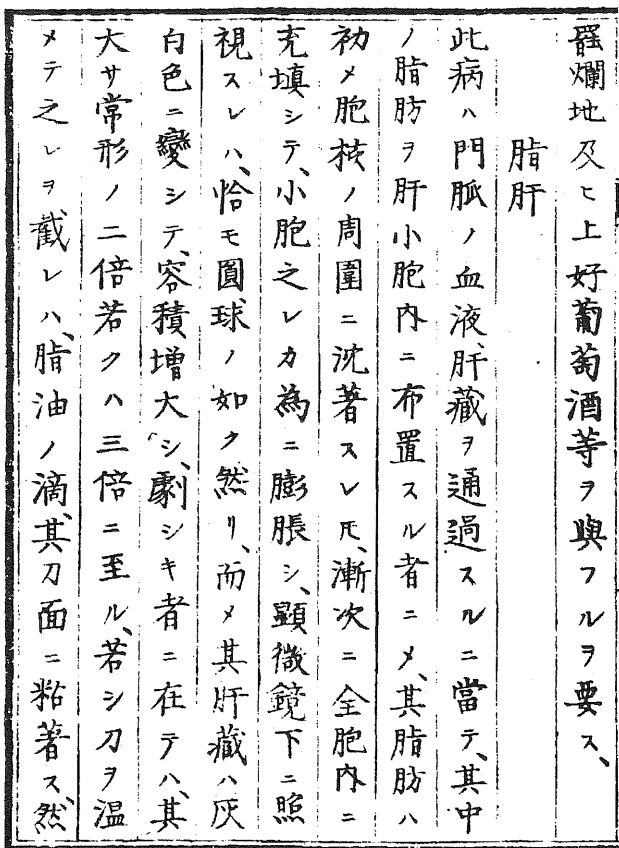 罌爛地及ヒ上好葡萄酒等ヲ與フルヲ要ス、
脂肝
此病ハ門脈ノ血液、肝藏ヲ通過スルニ當テ、其中
ノ脂肪ヲ肝小胞内ニ布置スル者ニメ、其脂肪ハ
初メ胞核ノ周圍ニ沈著スレ𪜈、漸次ニ全胞内ニ
充填シテ、小胞之レカ為ニ膨脹シ、顕微鏡下ニ照
視スレハ、恰モ圓球ノ如ク然リ、而メ其肝藏ハ灰
白色ニ變シテ、容積増大シ、劇シキ者ニ在テハ、其
大サ常形ノ二倍若クハ三倍ニ至ル、若シ刀ヲ温
メテ之レヲ截レハ、脂油ノ滴、其刀面ニ粘著ス、然